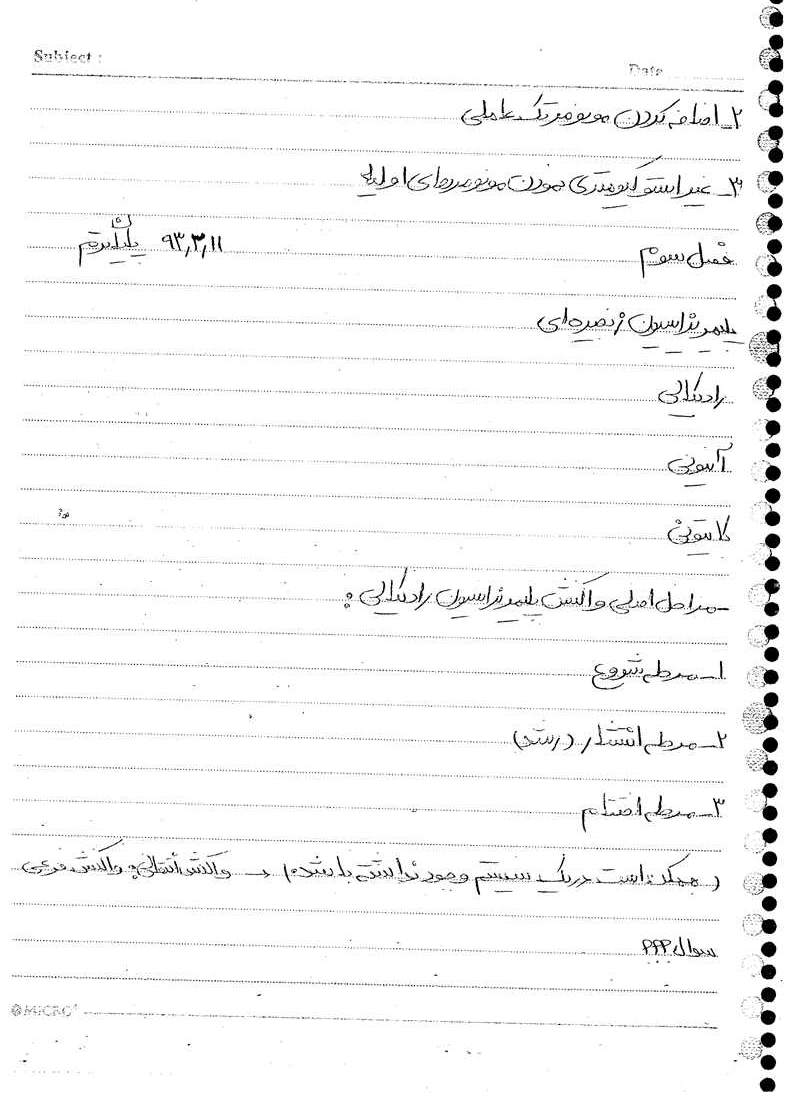 Subject :
Date
۲_ اضافه کردن مونومر تک عاملی
۳_ غیر استوکیومتری نمودن مونومرهای اولیه
فصل سوم ۹۳,۳,۱۱
پلیمریزاسیون زنجیره‌ای
رادیکالی
آنیونی
کاتیونی
-مراحل اصلی واکنش پلیمریزاسیون رادیکالی :
۱_ مرحله شروع
۲_ مرحله انتشار (رشد)
۳_ مرحله اختتام
(ممکن است در یک سیستم وجود نداشته باشد) → واکنش انتقالی: واکنش فرعی
سوال ؟؟؟
MICRO